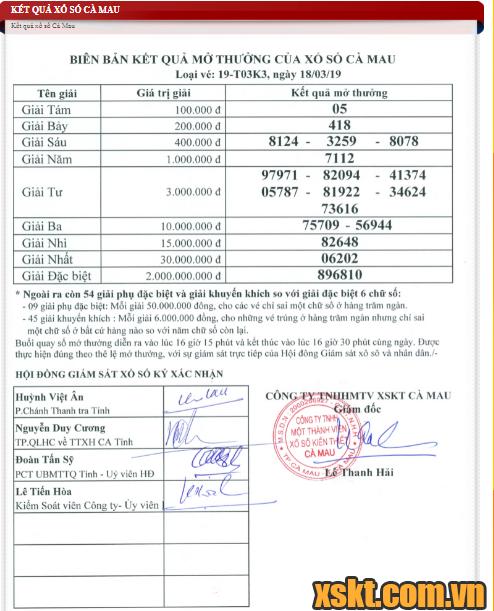 KẾT QUẢ XỔ SỐ CÀ MAU
Kết quả xổ số Cà Mau
BIÊN BẢN KẾT QUẢ MỞ THƯỞNG CỦA XỔ SỐ CÀ MAU
Loại vé: 19-T03K3, ngày 18/03/19
Tên giải Giá trị giải Kết quả mở thưởng
Giải Tám 100.000 đ 05
Giải Bảy 200.000 đ 418
Giải Sáu 400.000 đ 8124 - 3259 - 8078
Giải Năm 1.000.000 đ 7112
Giải Tư 3.000.000 đ 97971 - 82094 - 41374
05787 - 81922 - 34624
73616
Giải Ba 10.000.000 đ 75709 - 56944
Giải Nhì 15.000.000 đ 82648
Giải Nhất 30.000.000 đ 06202
Giải Đặc biệt 2.000.000.000 đ 896810
* Ngoài ra còn 54 giải phụ đặc biệt và giải khuyến khích so với giải đặc biệt 6 chữ số:
- 09 giải phụ đặc biệt: Mỗi giải 50.000.000 đồng, cho các vé chỉ sai một chữ số ở hàng trăm ngàn.
- 45 giải khuyến khích : Mỗi giải 6.000.000 đồng, cho những vé trúng ở hàng trăm ngàn nhưng chỉ sai
một chữ số ở bất cứ hàng nào so với năm chữ số còn lại.
Buổi quay số mở thưởng diễn ra vào lúc 16 giờ 15 phút và kết thúc vào lúc 16 giờ 30 phút cùng ngày. Được
thực hiện đúng theo thể lệ mở thưởng, với sự giám sát trực tiếp của Hội đồng Giám sát xổ số và nhân dân./-
HỘI ĐỒNG GIÁM SÁT XỔ SỐ KÝ XÁC NHẬN
Huỳnh Việt Ân
P.Chánh Thanh tra Tỉnh
Nguyễn Duy Cương
TP.QLHC về TTXH CA Tỉnh
Đoàn Tấn Sỹ
PCT UBMTTQ Tỉnh - Uỷ viên HĐ
Lê Tiến Hòa
Kiểm Soát viên Công ty- Ủy viên
CÔNG TY TNHHMTV XSKT CÀ MAU
Giám đốc
CÔNG TY TNHH
MỘT THÀNH VIÊN
XỔ SỐ KIẾN THIẾT
CÀ MAU
TP CÀ MAU - T. CÀ MAU
Lê Thanh Hải
xskt.com.vn